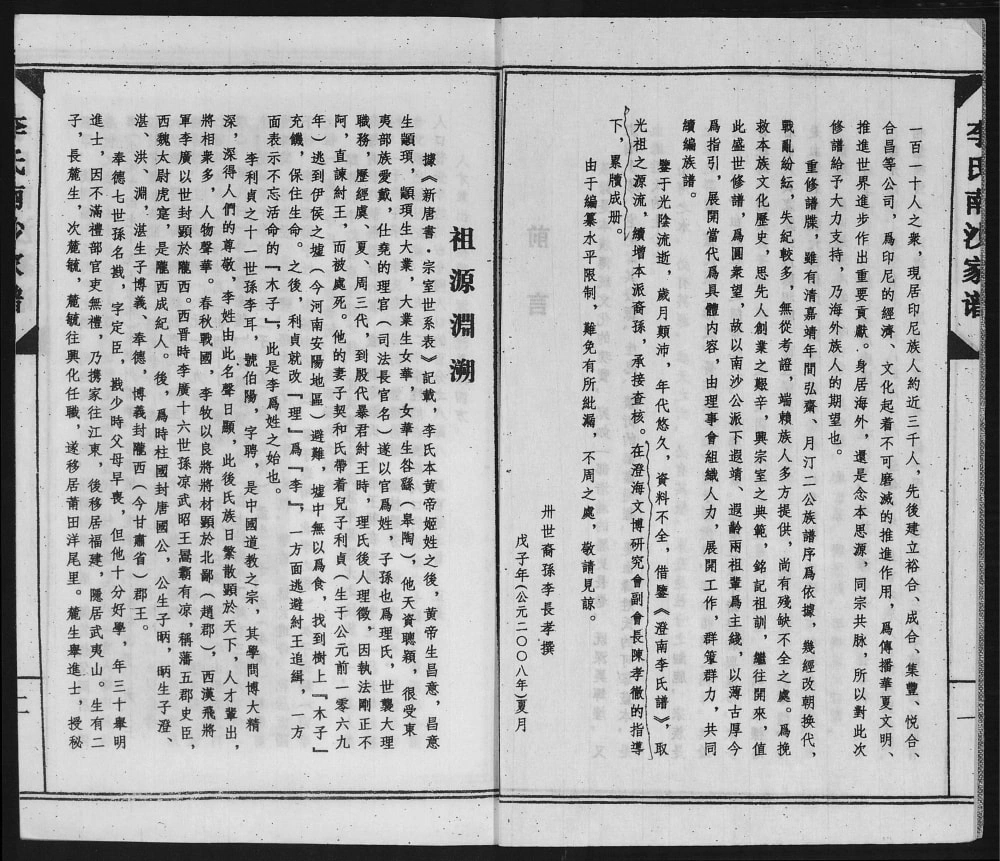 李氏南沙家譜
一
一百一十人之衆，現居印尼族人約近三千人，先後建立裕合、成合、集豐、悦合、
合昌等公司，爲印尼的經濟、文化起着不可磨滅的推進作用，爲傳播華夏文明、
推進世界進步作出重要貢獻。身居海外，還是念本思源，同宗共脉，所以對此次
修譜給予大力支持，乃海外族人的期望也。
重修譜牒，雖有清嘉靖年間弘齋、月汀二公族譜序爲依據，幾經改朝换代，
戰亂紛紜，失紀較多，無從考證，端賴族人多方提供，尚有殘缺不全之處。爲挽
救本族文化歷史，思先人創業之艱辛，興宗室之典範，銘記祖訓，繼往開來，值
此盛世修譜，爲圓衆望，故以南沙公派下遐靖、遐齡兩祖輩爲主綫，以薄古厚今
爲指引，展開當代爲具體内容，由理事會組織人力，展開工作，群策群力，共同
續編族譜。
鑒于光陰流逝，歲月顛沛，年代悠久，資料不全，借鑒《澄南李氏譜》，取
光祖之源流，續增本派裔孫，承接查核。在澄海文博研究會副會長陳孝徹的指導
下，累牘成册。
由于編纂水平限制，難免有所紕漏，不周之處，敬請見諒。
卅世裔孫李長孝撰
戊子年(公元二〇〇八年)夏月
祖源淵溯
據《新唐書·宗室世系表》記載，李氏本黄帝姬姓之後，黄帝生昌意，昌意
生顓頊，顓頊生大業，大業生女華，女華生咎繇（皋陶），他天資聰穎，很受東
夷部族愛戴，仕堯的理官（司法長官名）遂以官爲姓，子孫也爲理氏，世襲大理
職務，歷經虞、夏、周三代，到殷代暴君紂王時，理氏後人理徵，因執法剛正不
阿，直諫紂王，而被處死。他的妻子契和氏帶着兒子利貞（生于公元前一零六九
年）逃到伊侯之墟（今河南安陽地區）避難，墟中無以爲食，找到樹上『木子』
充饑，保住生命。之後，利貞就改『理』爲『李』，一方面逃避紂王追緝，一方
面表示不忘活命的『木子』，此是李爲姓之始也。
李利貞之十一世孫李耳，號伯陽，字聃，是中國道教之宗，其學問博大精
深，深得人們的尊敬，李姓由此名聲日顯，此後氏族日繁散顯於天下，人才輩出，
將相衆多，人物聲華。春秋戰國，李牧以良將將材顯於北鄙（趙郡），西漢飛將
軍李廣以世封顯於隴西。西晋時李廣十六世孫凉武昭王暠霸有凉，稱藩五郡史臣，
西魏太尉虎寔，是隴西成紀人。後，爲時柱國封唐國公，公生子昞，昞生子澄、
湛、洪、淵，湛生子博義、奉德，博義封隴西（今甘肅省）郡王。
奉德七世孫名戡，字定臣，戡少時父母早喪，但他十分好學，年三十舉明
進士，因不滿禮部官吏無禮，乃携家往江東，後移居福建，隱居武夷山。生有二
子，長麓生，次麓毓，麓毓往興化任職，遂移居莆田洋尾里。麓生舉進士，授秘
二